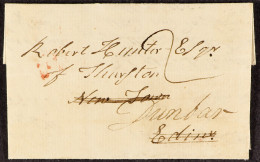 Robert Hunter Esqr
of Thurston
2
New Town
Dunbar
Edinr